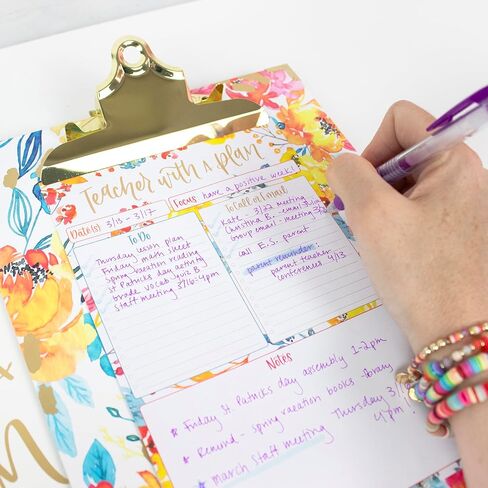 Teacher with a plan
Date(s) 3/13 - 3/17
Focus: have a positive week!
To Do
Thursday lesson plan
Friday math sheet
spring vacation reading
St Patricks day activity
grade vocab quiz B
staff meeting 3/16: 4pm
To call or Email
Kate: 3/22 meeting
Christina B. - email 3/
Group email: meeting 3/
call E.S. parent
parent reminder:
parent teacher
conferences 4/13
Notes
* Friday St. Patricks day assembly 1-2pm
* Remind - spring vacation books library
* march staff meeting Thursday 3/
4pm!